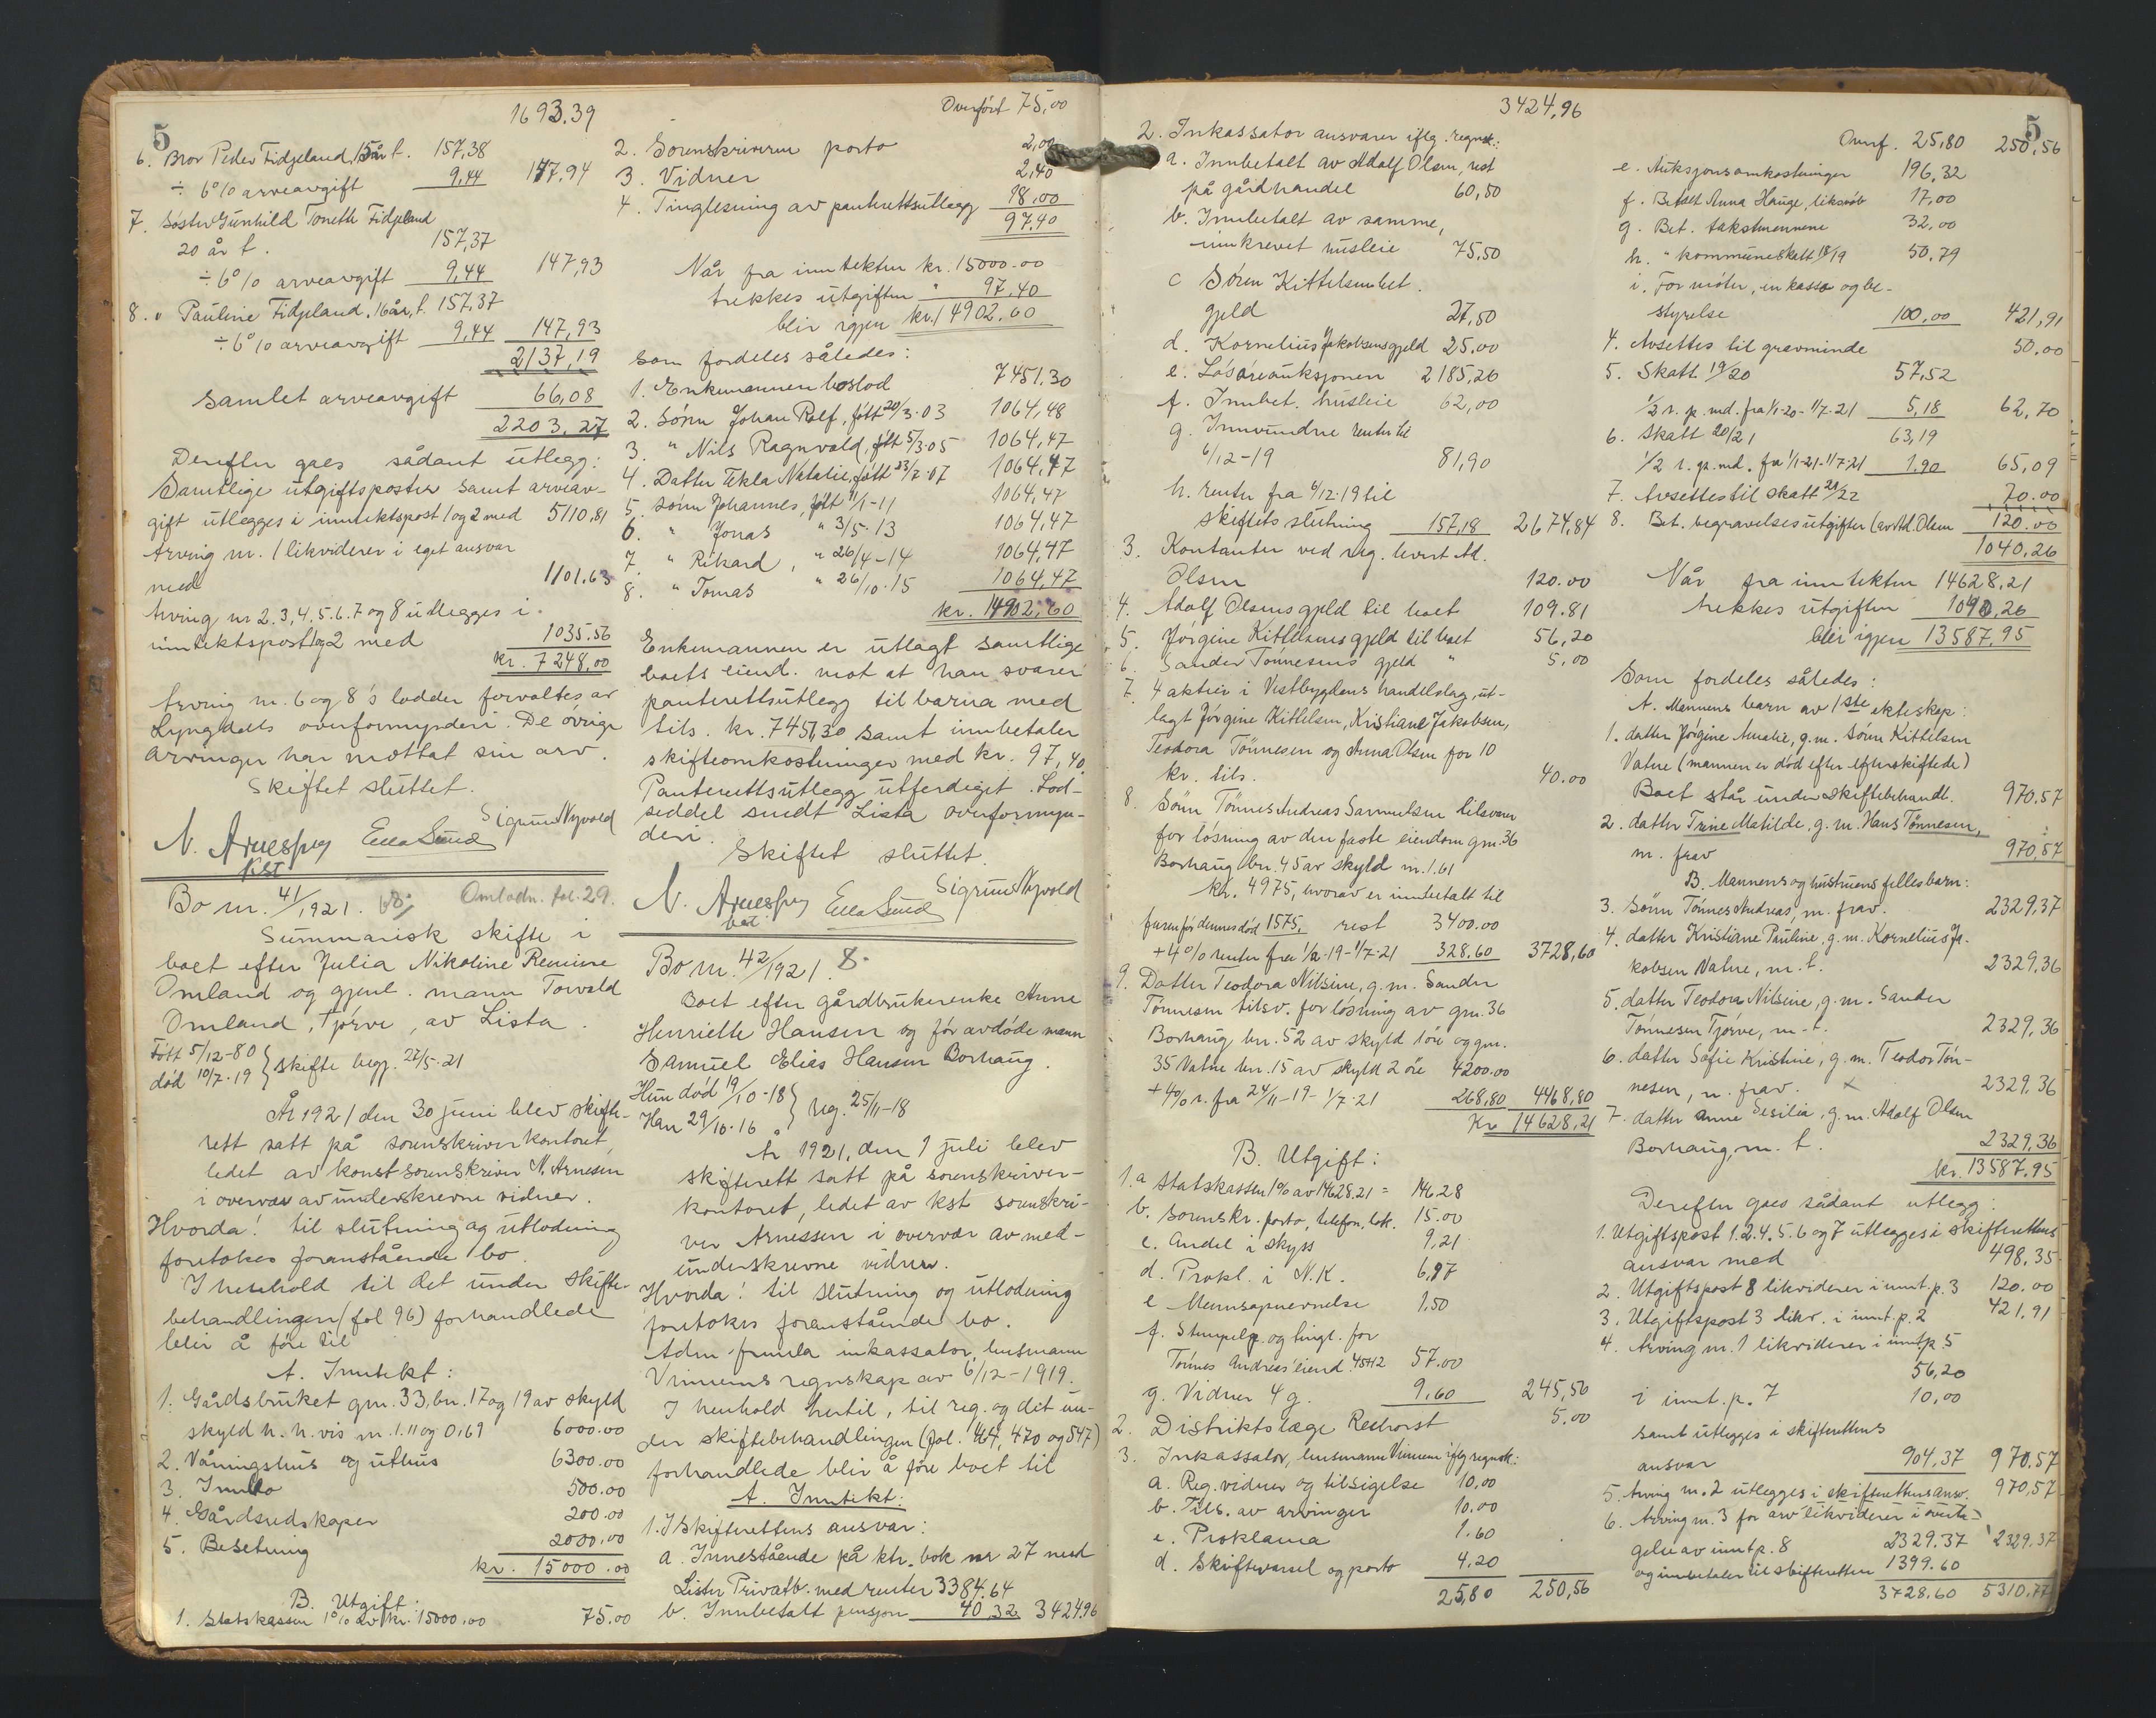 5
1693.39
6. Bror Peder Fidjeland, 15 år f. 157,38
÷ 6% arveavgift 9,44 147,94
7. Søster Gunhild Tonette Fidjeland
20 år f. 157,37
÷ 6% arveavgift 9,44 147,93
8. " Pauline Fidjeland, 16 år, f. 157,37
÷ 6% arveavgift 9,44 147,93
2137,19
Samlet arveavgift 66,08
2203,27
Derefter gaes sådant utlegg:
Samtlige utgiftsposter samt arveav-
gift utlegges i inntektspost 1 og 2 med 5110,81
Arving nr. 1 likviderer i eget ansvar
med 1101,63
Arving nr 2.3,4.5.6.7 og 8 utlegges i
inntektspost 1 og 2 med 1035.56
kr. 7248,00
Arving nr. 6 og 8's lodder forvaltes av
Lyngdals overformynderi. De øvrige
arvinger har mottat sin arv.
Skiftet sluttet.
N. Arnesen
kst
Ella Sund
Sigrun Nyvold
Bo nr. 41/1921.
Omlodn. fol. 29.
Summarisk skifte i
boet efter Julia Nikoline Remine
Omland og gjenl. mann Torvald
Omland, Tjørve, av Lista.
Født 5/12-80
død 10/7-19 } skifte begj. 21/5-21
År 1921 den 30 juni blev skifte-
rett satt på sorenskriverkontoret,
ledet av konst sorenskriver N. Arnesen
i overvær av underskrevne vidner.
Hvorda! til slutning og utlodning
foretokes foranstående bo.
I henhold til det under skifte-
behandlingen (fol 96) forhandlede
blir å føre til
A. Inntekt:
1. Gårdsbruket gnr. 33, bnr. 17 og 19 av skyld
skyld h. h. vis m. 1.11 og 0,69 6000.00
2. Våningshus og uthus 6300.00
3. Innbo 500.00
4. Gårdsredskaper 200.00
5. Besetning 2000.00
kr. 15000.00
B. Utgift:
1. Statskassen 1% av kr. 15000.00 75.00
Overført 75,00
2. Sorenskriveren porto 2,00
3. Vidner 2,40
4. Tinglesning av panterettsutlegg 18,00
97,40
Når fra inntekten kr. 15000.00
trekkes utgiften " 97,40
blir igjen kr. 14902.60
som fordeles således:
1. Enkemannen boslod 7451,30
2. Sønn Johan Rolf, født 20/3-03 1064,48
3. " Nils Ragnvald, født 5/3-05 1064,47
4. Datter Tekla Natalie, født 23/7-07 1064,47
5. Sønn Johannes, født 4/1-11 1064,47
6. " Jonas " 3/5-13 1064,47
7. " Rikard, " 26/4-14 1064,47
8. " Tomas " 26/10-15 1064,47
kr. 14902,60
Enkemannen er utlagt samtlige
boets eiend. mot at han svarer
panterettsutlegg til barna med
tils. kr. 7451,30 samt innbetaler
skifteomkostninger med kr. 97,40.
Panterettsutlegg utferdiget. Lod-
seddel sendt Lista overformyn-
deri.
Skiftet sluttet.
N. Arnesen
Ella Sund
Sigrun Nyvold
Bo nr. 42/1921. 8.
Boet efter gårdbrukerenke Anne
Henriette Hansen og før avdøde mann
Samuel Elias Hansen Borhaug.
Hun død 19/10-18
Han " 29/10-16 } reg. 25/11-18
År 1921, den 1 juli blev
skifterett satt på sorenskriver-
kontoret, ledet av kst sorenskri-
ver Arnessen i overvær av med-
underskrevne vidner.
Hvorda! til slutning og utlodning
foretokes foranstående bo.
Adm fremla inkassator, lensmann
Vinnems regnskap av 6/12-1919.
I henhold hertil, til reg. og det un-
der skiftebehandlingen (fol. 464, 470 og 547)
forhandlede blir å føre boet til
A. Inntekt:
1. I skifterettens ansvar:
a. Innestående på ktr. bok nr 27 med
Lister Privatb. med renter 3384.64
b. Innbetalt pensjon 40 32 3424 96
3424,96
2. Inkassator ansvarer iflg. regnsk.:
a. Innbetalt av Adolf Olsen, rest
på gårdhandel 60,50
b. Innbetalt av samme,
innkrevet husleie 75,50
c Søren Kittelsen bet.
gjeld 27,50
d. Kornelius Jakobsens gjeld 25.00
e. Løsøreauksjonen 2185,26
f. Innbet. husleie 62,00
g. Innvundne renter til
6/12-19 81,90
h. renter fra 6/12-19 til
skiftets slutning 157,18 2674,84
3. Kontanter ved reg. levert Ad.
Olsen 120.00
4. Adolf Olsens gjeld til boet 109.81
5. Jørgine Kittelsens gjeld til boet 56,20
6. Sander Tønnesens gjeld " 5,00
7. 4 aktier i Vestbygdens handelslag, ut-
lagt Jørgine Kittelsen, Kristiane Jakobsen,
Teodora Tönnesen og Anna Olsen for 10
kr. tils. 40.00
8. Sønn Tönnes Andreas Samuelsen tilsvarer
for løsning av den faste eiendom gnr. 36
Borhaug bnr. 45 av skyld m. 1.61
kr. 4975, hvorav er innbetalt til
faren før dennes død 1575, rest 3400.00
+ 4% renter fra 1/2-19-1/7-21 328.60 3728,60
9. Datter Teodora Nilsine, g.m. Sander
Tönnesen tilsv. for løsning av gnr. 36
Borhaug bnr. 52 av skyld 1 øre og gnr.
35 Vatne bnr. 15 av skyld 2 øre 4200.00
+ 4% r. fra 24/11-19-1/7-21 268,80 4468,80
Kr 14628,21
B. Utgift:
1.a Statskassen 1% av 14628.21 = 146,28
b. Sorenskr. porto, telefon, lok. 15.00
c. Andel i skyss 9,21
d. Prokl. i N.K. 6,97
e 1,50
f. Stempelp. og tingl. for
Tønnes Andreas' eiend 57.00
g. Vidner 4 g. 9,60 245,56
2. Distriktslæge 5.00
3. Inkassator, lensmann Vinnem iflg regnsk.:
a. Reg. vidner og tilsigelse 10.00
b. Tils. av arvinger 10.00
c. Proklama 1.60
d. Skiftevarsel og porto 4,20
25,80 250,56
5
Overf. 25,80 250,56
e. Auksjonsomkostninger 196,32
f. Betalt Anna Hauge, liksvøb 17,00
g. Bet. takstmennene 32,00
h. " kommuneskatt 18/19 50,79
i. For møter, en kasse og be-
styrelse 100,00 421,91
4. Avsettes til gravminde 50,00
5. Skatt 19/20 57,52
1/2 r. p. md. fra 1/1-20-1/7-21 5,18 62,70
6. Skatt 20/21 63,19
1/2 r. p. md. fra 1/1-21-1/7-21 1,90 65,09
7. Avsettes til skatt 21/22 70.00
8. Bet. begravelsesutgifter (av Ad. Olsen 120.00
1040,26
Når fra inntekten 14628,21
trekkes utgiften 1040,26
blir igjen 13587,95
Som fordeles således:
A. Mannens barn av 1ste ekteskap:
1. datter Jørgine Amalie, g.m. Sønn Kittelsen
Vatne (mannen er død efter
Boet står under skiftebehandl. 970,57
2. datter Trine Matilde, g.m. Hans Tønnesen,
m. frav 970,57
B. Mannens og hustruens fellesbarn:
3. Sønn Tønnes Andreas, m. frav. 2329,37
4. datter Kristiane Pauline, g.m. Kornelius Ja-
kobsen Vatne, m. t. 2329,36
5. datter Teodora Nilsine, g.m. Sander
Tönnesen Tjørve, m. t. 2329,36
6. datter Sofie Kristine, g.m. Teodor Tøn-
nesen, m. frav. × 2329,36
7. datter Anne Sesilia, g.m. Adolf Olsen
Borhaug, m. t. 2329,36
kr. 13587,95
Derefter gaes sådant utlegg:
1. Utgiftspost 1.2.4.5.6 og 7 utlegges i skifterettens
ansvar med 498,35
2. Utgiftspost 8 likviderer i innt. p. 3 120.00
3. Utgiftspost 3 likv. i innt. p. 2 421,91
4. Arving nr. 1 likviderer i innt. p. 5
56,20
i innt. p. 7 10,00
samt utlegges i skifterettens
ansvar 904,37 970,57
5. Arving nr. 2 utlegges i skifterettens ansv. 970,57
6. Arving nr. 3 for arv likviderer i
gelse av innt p. 8 2329.37 2329,37
og innbetaler til skifteretten 1399.60
3728.60 5310.77